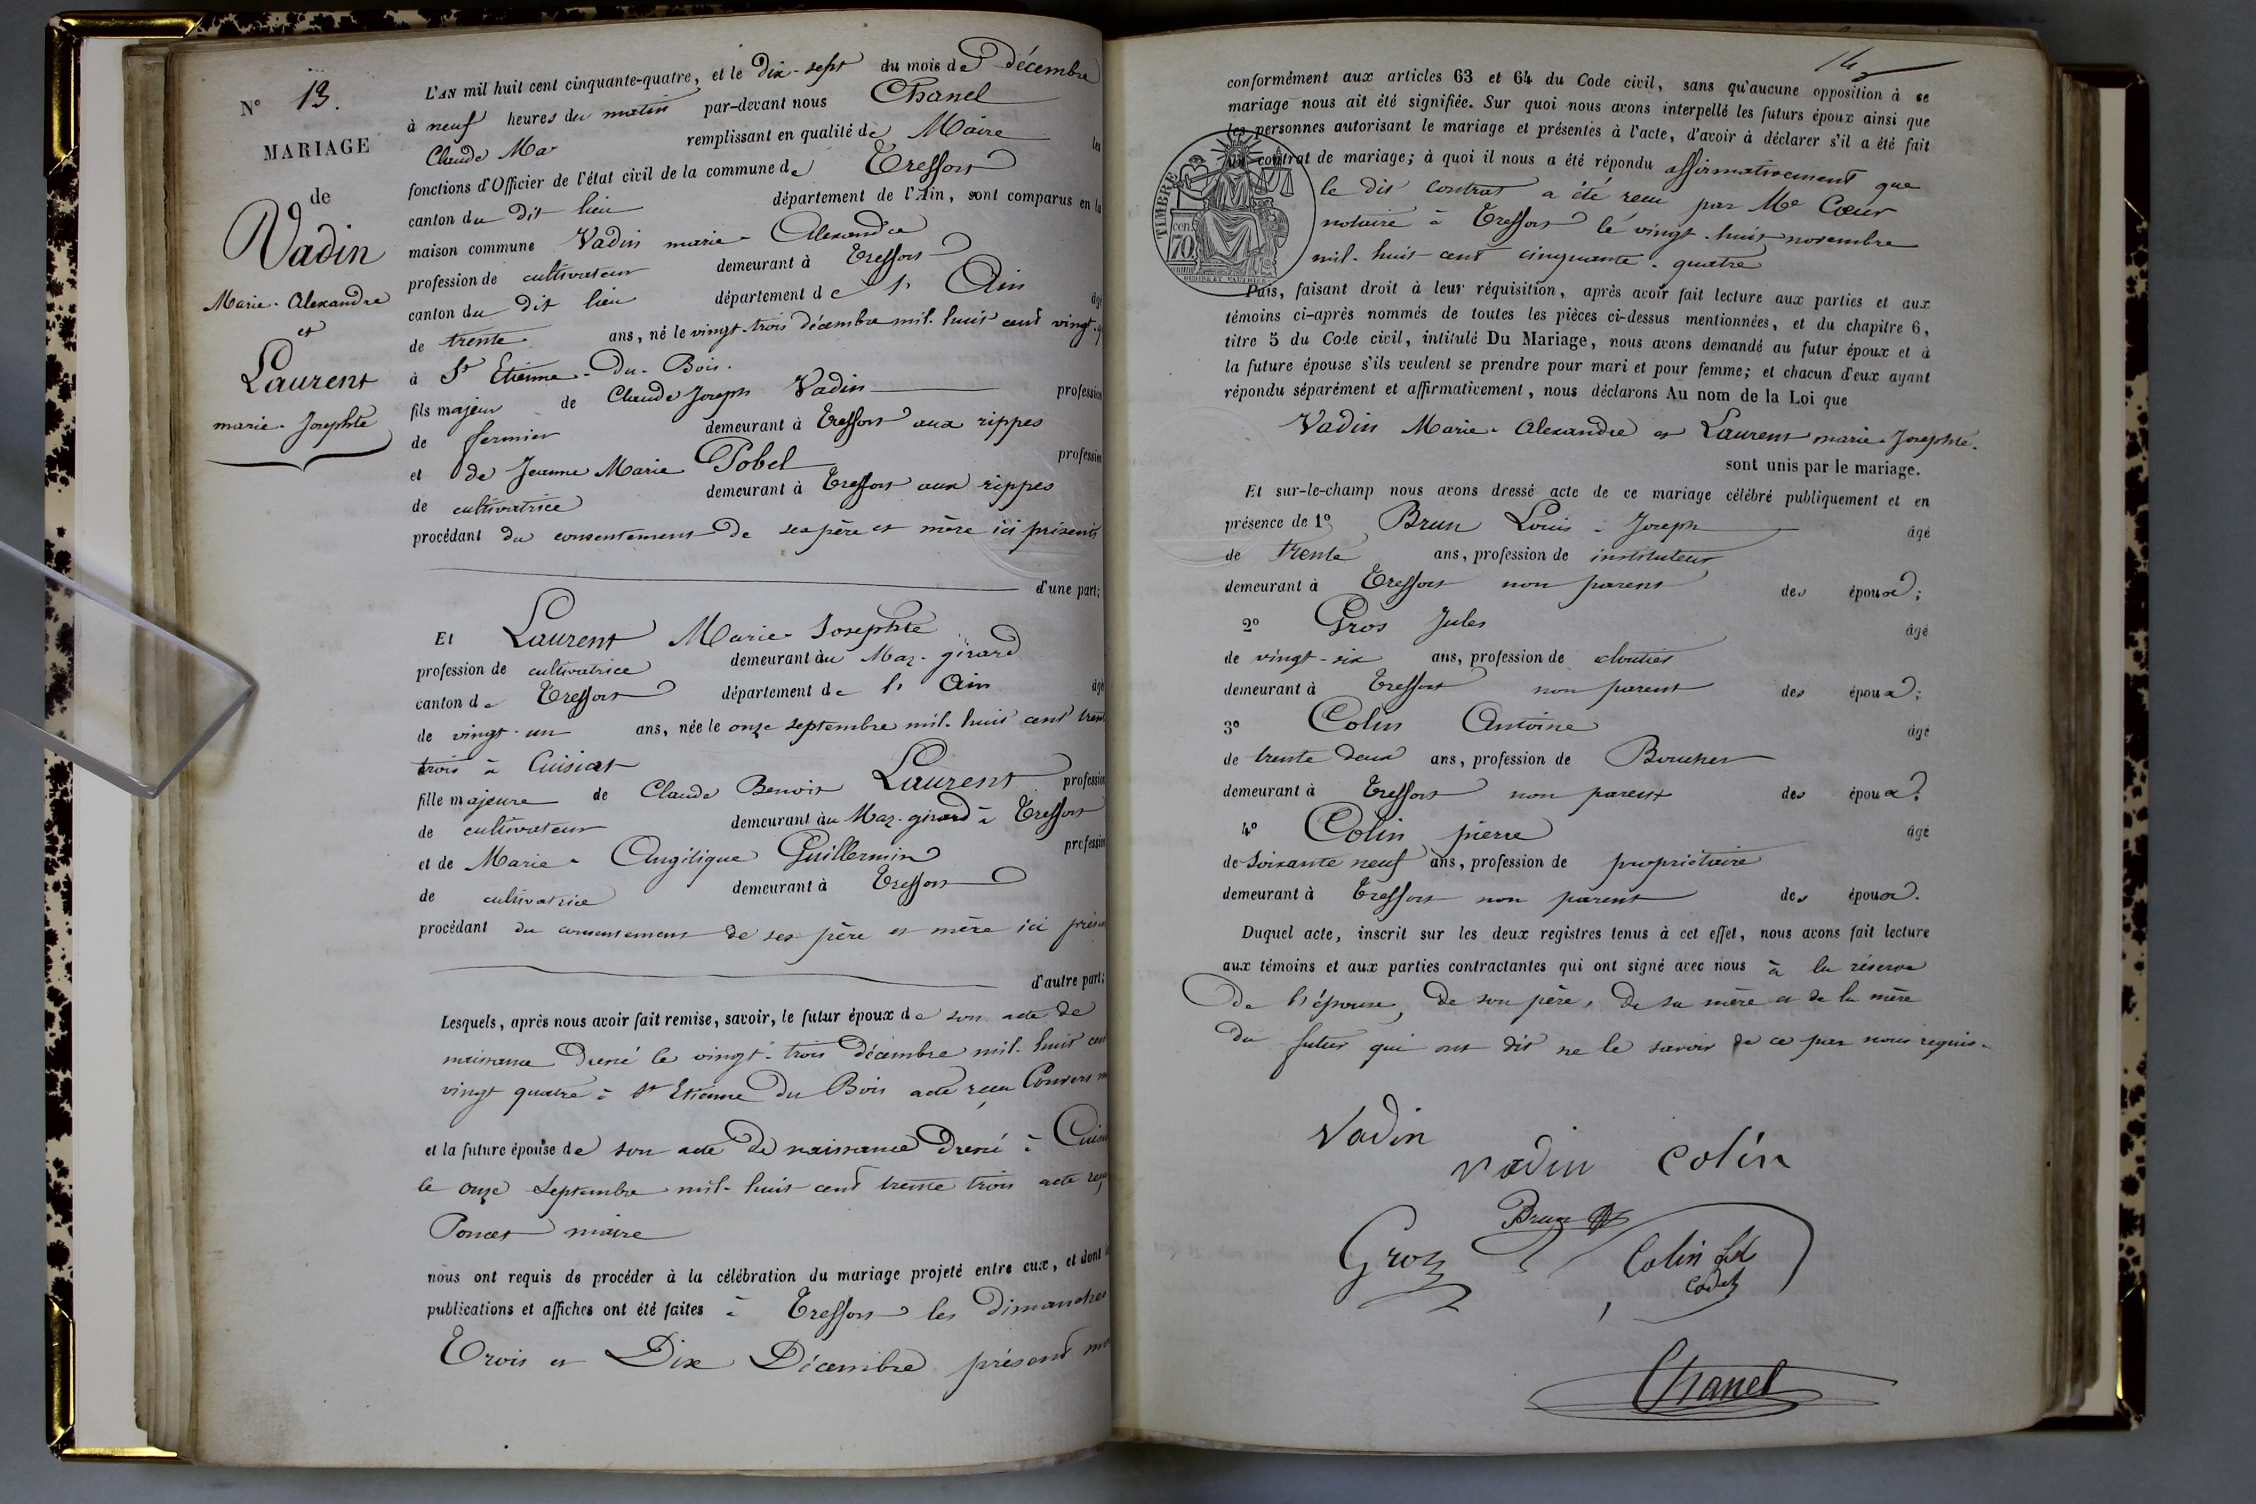 N° 13.
MARIAGE
de
Vadin
Marie-Alexandre
et
Laurent
marie-Josephte
L'AN mil huit cent cinquante-quatre, et le Dix-sept du mois de Décembre
à neuf heures du matin par-devant nous Chanel
Claude Mar remplissant en qualité de Maire les
fonctions d'Officier de l'état civil de la commune de Treffort
canton du dit lieu département de l'Ain, sont comparus en la
maison commune Vadin marie-Alexandre
profession de cultivateur demeurant à Treffort
canton du dit lieu département de l' Ain âgé
de trente ans, né le vingt-trois décembre mil-huit cent vingt-q
à St Etienne-Du-Bois.
fils majeur de Claude Joseph Vadin profession
de fermier demeurant à Treffort aux rippes
et de Jeanne Marie Pobel profession
de cultivatrice demeurant à Treffort aux rippes
procédant du consentement de ses père et mère ici présents
d'une part;
Et Laurent Marie-Josephte
profession de cultivatrice demeurant au Maz-girard
canton de Treffort département de l' Ain âgé
de vingt-un ans, née le onze septembre mil-huit cent trent
trois à Cuisiat
fille majeure de Claude Benoit Laurent profession
de cultivateur demeurant au Maz-girard à Treffort
et de Marie-Angélique Guillermin profession
de cultivatrice demeurant à Treffort
procédant du consentement de ses père et mère ici présen
d'autre part;
Lesquels, après nous avoir fait remise, savoir, le futur époux de son acte de
naissance Dressé le vingt-trois décembre mil-huit cent
vingt quatre à St Etienne Du Bois acte reçu Convers m
et la future épouse de son acte De naissance Dressé à Cuisi
le onze Septembre mil-huit cent trente trois acte reçu
Poncet maire
nous ont requis de procéder à la célébration du mariage projeté entre eux, et dont
publications et affiches ont été faites à Treffort les Dimanches
Trois et Dix Décembre présent mo
14
conformément aux articles 63 et 64 du Code civil, sans qu'aucune opposition à ce
mariage nous ait été signifiée. Sur quoi nous avons interpellé les futurs époux ainsi que
les personnes autorisant le mariage et présentes à l'acte, d'avoir à déclarer s'il a été fait
un contrat de mariage; à quoi il nous a été répondu affirmativement que
le dit contrat a été reçu par Me Cœur
notaire à Treffort le vingt-huit novembre
mil-huit cent cinquante-quatre
TIMBRE
cen
70
Puis, faisant droit à leur réquisition, après avoir fait lecture aux parties et aux
témoins ci-après nommés de toutes les pièces ci-dessus mentionnées, et du chapitre 6,
titre 5 du Code civil, intitulé Du Mariage, nous avons demandé au futur époux et à
la future épouse s'ils veulent se prendre pour mari et pour femme; et chacun d'eux ayant
répondu séparément et affirmativement, nous déclarons Au nom de la Loi que
Vadin Marie-Alexandre et Laurent marie-Josephte.
sont unis par le mariage.
Et sur-le-champ nous avons dressé acte de ce mariage célébré publiquement et en
présence de 1° Brun Louis-Joseph âgé
de trente ans, profession de instituteur
demeurant à Treffort non parent des époux;
2° Gros Jules âgé
de vingt-six ans, profession de cloutier
demeurant à Treffort non parent des époux;
3° Colin Antoine âgé
de trente deux ans, profession de Boucher
demeurant à Treffort non parent des époux;
4° Colin pierre âgé
de Soixante neuf ans, profession de propriétaire
demeurant à Treffort non parent des époux.
Duquel acte, inscrit sur les deux registres tenus à cet effet, nous avons fait lecture
aux témoins et aux parties contractantes qui ont signé avec nous à la réserve
De l'épouse, De son père, De sa mère et de la mère
Du futur qui ont dit ne le savoir de ce par nous requis.
Vadin
vadin colin
Brun
Gros Colin
Cadet
Chanel